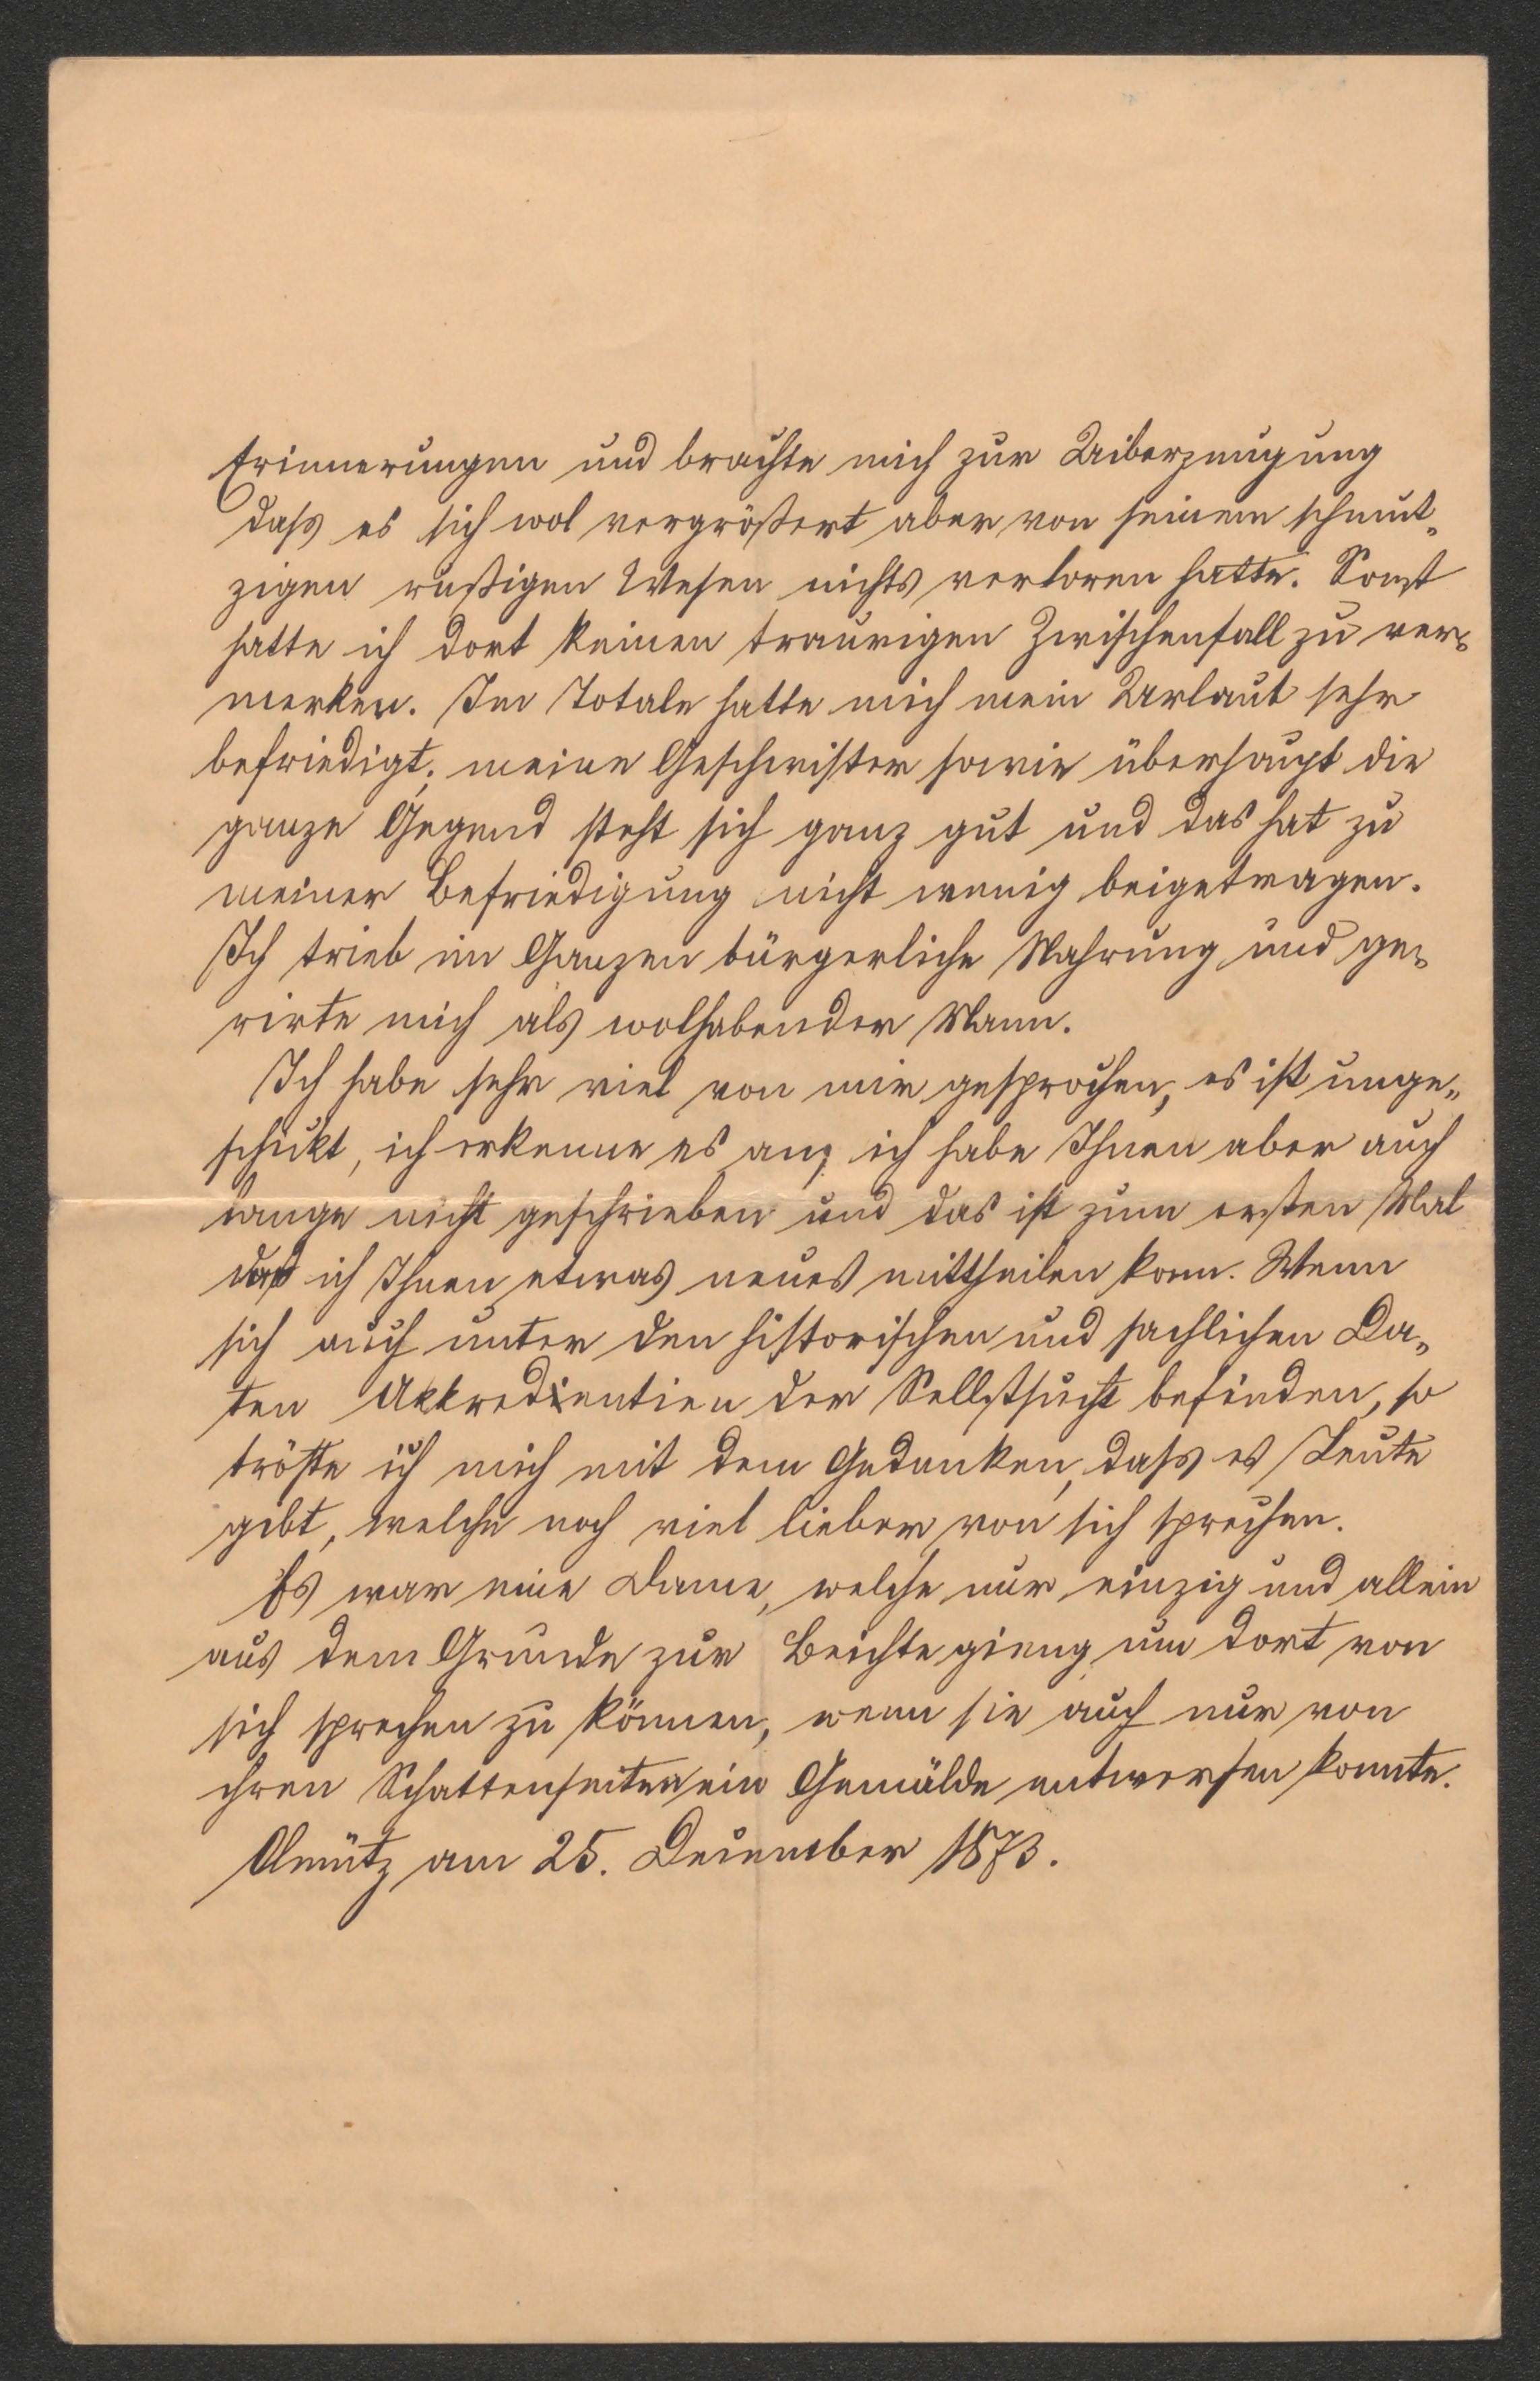 Erinnerungen und brachte mich zur Uiberzeugung
dass es sich wol vergrößert aber von seinem schmut-
zigen rußigen Wesen nichts verloren hatte. Sonst
hatte ich dort keinen traurigen Zwischenfall zu ver-
merken. Im Totale hatte mich mein Urlaub sehr
befriedigt, meine Geschwister sowie überhaupt die
ganze Gegend steht sich ganz gut und das hat zu
meiner Befriedigung nicht wenig beigetragen.
Ich trieb im Ganzen bürgerliche Nahrung und ge-
rirte mich als wolhabender Mann.
Ich habe sehr viel von mir gesprochen, es ist unge-
schickt, ich erkenne es an; ich habe Ihnen aber auch
lange nicht geschrieben und das ist zum ersten Mal
daß ich Ihnen etwas neues mittheilen kann. Wenn
sich auch unter den historischen und sachlichen Da-
ten Akkredientien der Selbstsucht befinden, so
tröste ich mich mit dem Gedanken, dass es Leute
gibt, welche noch viel lieber von sich sprechen.
Es war eine Dame, welche nur einzig und allein
aus dem Grunde zur Beichte gieng um dort von
sich sprechen zu können, wenn sie auch nur von
ihren Schattenseiten ein Gemälde entwerfen konnte.
Olmütz am 25. December 1873.